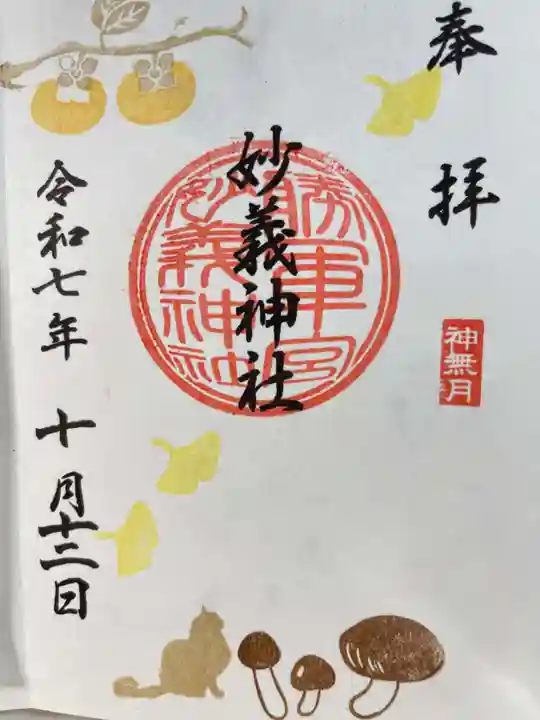 奉拝
神無月
妙義神社
妙義神社
令和七年 十月十二日